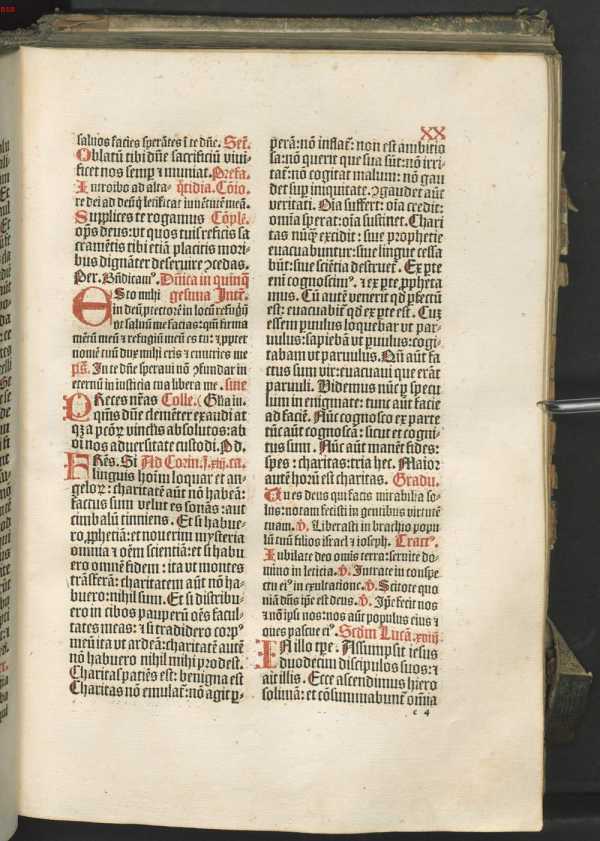 XX
saluos facies sperātes ī te dñe. Secrẽ.
Oblatū tibi dñe sacrificiū viui-
ficet nos semꝑ ⁊ muniat. Prefa.
Introibo ad alta⁹ q̄tidia. Cōio.
re dei ad deū q̇ letificat iuuētutē meā.
Supplices te rogamus Cōple.
oꝑs deus: vt quos tuis reficis sa
cramētis tibi etiā placitis mori-
bus dignāter deseruire ↄcedas.
Per. Bñdicam⁹. Dñica in quinq̄
ESto mihi gesima Intr̄.
in deū ꝓtectorē in locū refugij
vt saluū me facias: qm̄ firma
mētū meū ⁊ refugiū meū es tu: ⁊ ꝓpter
nomē tuū dux mihi eris ⁊ enutries me
ps̄. In te dñe speraui nō ↄfundar in
eternū in iusticia tua libera me. sine
PReces nr̄as Colle. (Glia in.
q̄m̄s dñe clemēter exaudi at
qꝫ a pctōꝝ vinclis absolutos: ab
oī nos aduersitate custodi. P̄ d.
FRēs. Si Ad Corin. j. xiij. ca.
linguis hoīm loquar et an-
geloꝝ: charitatē aūt nō habeā:
factus sum velut es sonās: aut
cimbalū tinniens. Et si habue-
ro ꝓphetiā: et nouerim mysteria
omnia ⁊ oēm scientiā: et si habu
ero omnē fidem: ita vt montes
trāsferā: charitatem aūt nō ha-
buero: nihil sum. Et si distribu-
ero in cibos pauperū oēs facul-
tates meas: ⁊ si tradidero corp⁹
meū ita vt ardeā: charitatē autē
nō habuero nihil mihi prodest.
Charitas patiēs est: benigna est
Charitas nō emulat̄: nō agit ꝑ-
perā: nō inflat̄: non est ambitio
sa: nō querit que sua sūt: nō irri
tat̄: nō cogitat malum: nō gau
det suꝑ iniquitate. ↄgaudet aūt
veritati. Oīa suffert: oīa credit:
omīa sperat: oīa sustinet. Chari
tas nūqꝫ excidit: siue prophetie
euacuabuntur: siue lingue cessa
būt: siue sciētia destruet̄. Ex pte
enī cognoscim⁹. ⁊ ex pte ꝓpheta
mus. Cū autē venerit qd̄ ꝑfectū
est: euacuabit̄ qd̄ ex pte est. Cuꝫ
essem ꝑuulus loquebar vt par-
uulus: sapiebā vt ꝑuulus: cogi-
tabam vt paruulus. Qn̄ aūt fa-
ctus sum vir: euacuaui que erāt
paruuli. Videmus nūc ꝑ specu
lum in enigmate: tunc aūt facie
ad faciē. Nūc cognosco ex parte
tūc aūt cognoscā: sicut et cogni-
tus sum. Nūc aūt manēt fides:
spes: charitas: tria hec. Maior
autē horū est charitas. Gradu.
Tu es deus qui facis mirabilia so-
lus: notam fecisti in gentibus virtutē
tuam. ℣. Liberasti in brachio popu
lū tuū filios israel ⁊ ioseph. Tract⁹.
Iubilate deo omīs terra: seruite do-
mino in leticia. ℣. Intrate in conspe
ctu ei⁹ in exultatione. ℣. Scitote quo
niā dñs ip̄e est deus. ℣. Ip̄e fecit nos
⁊ nō ip̄i nos: nos aūt populus eius ⁊
oues pascue ei⁹. Scdm Lucā. xviij
IN illo tꝑe. Assumpsit iesus
duodecim discipulos suos: ⁊
ait illis. Ecce ascendimus hiero
solimā: et cōsummabunt̄ omīa
c 4